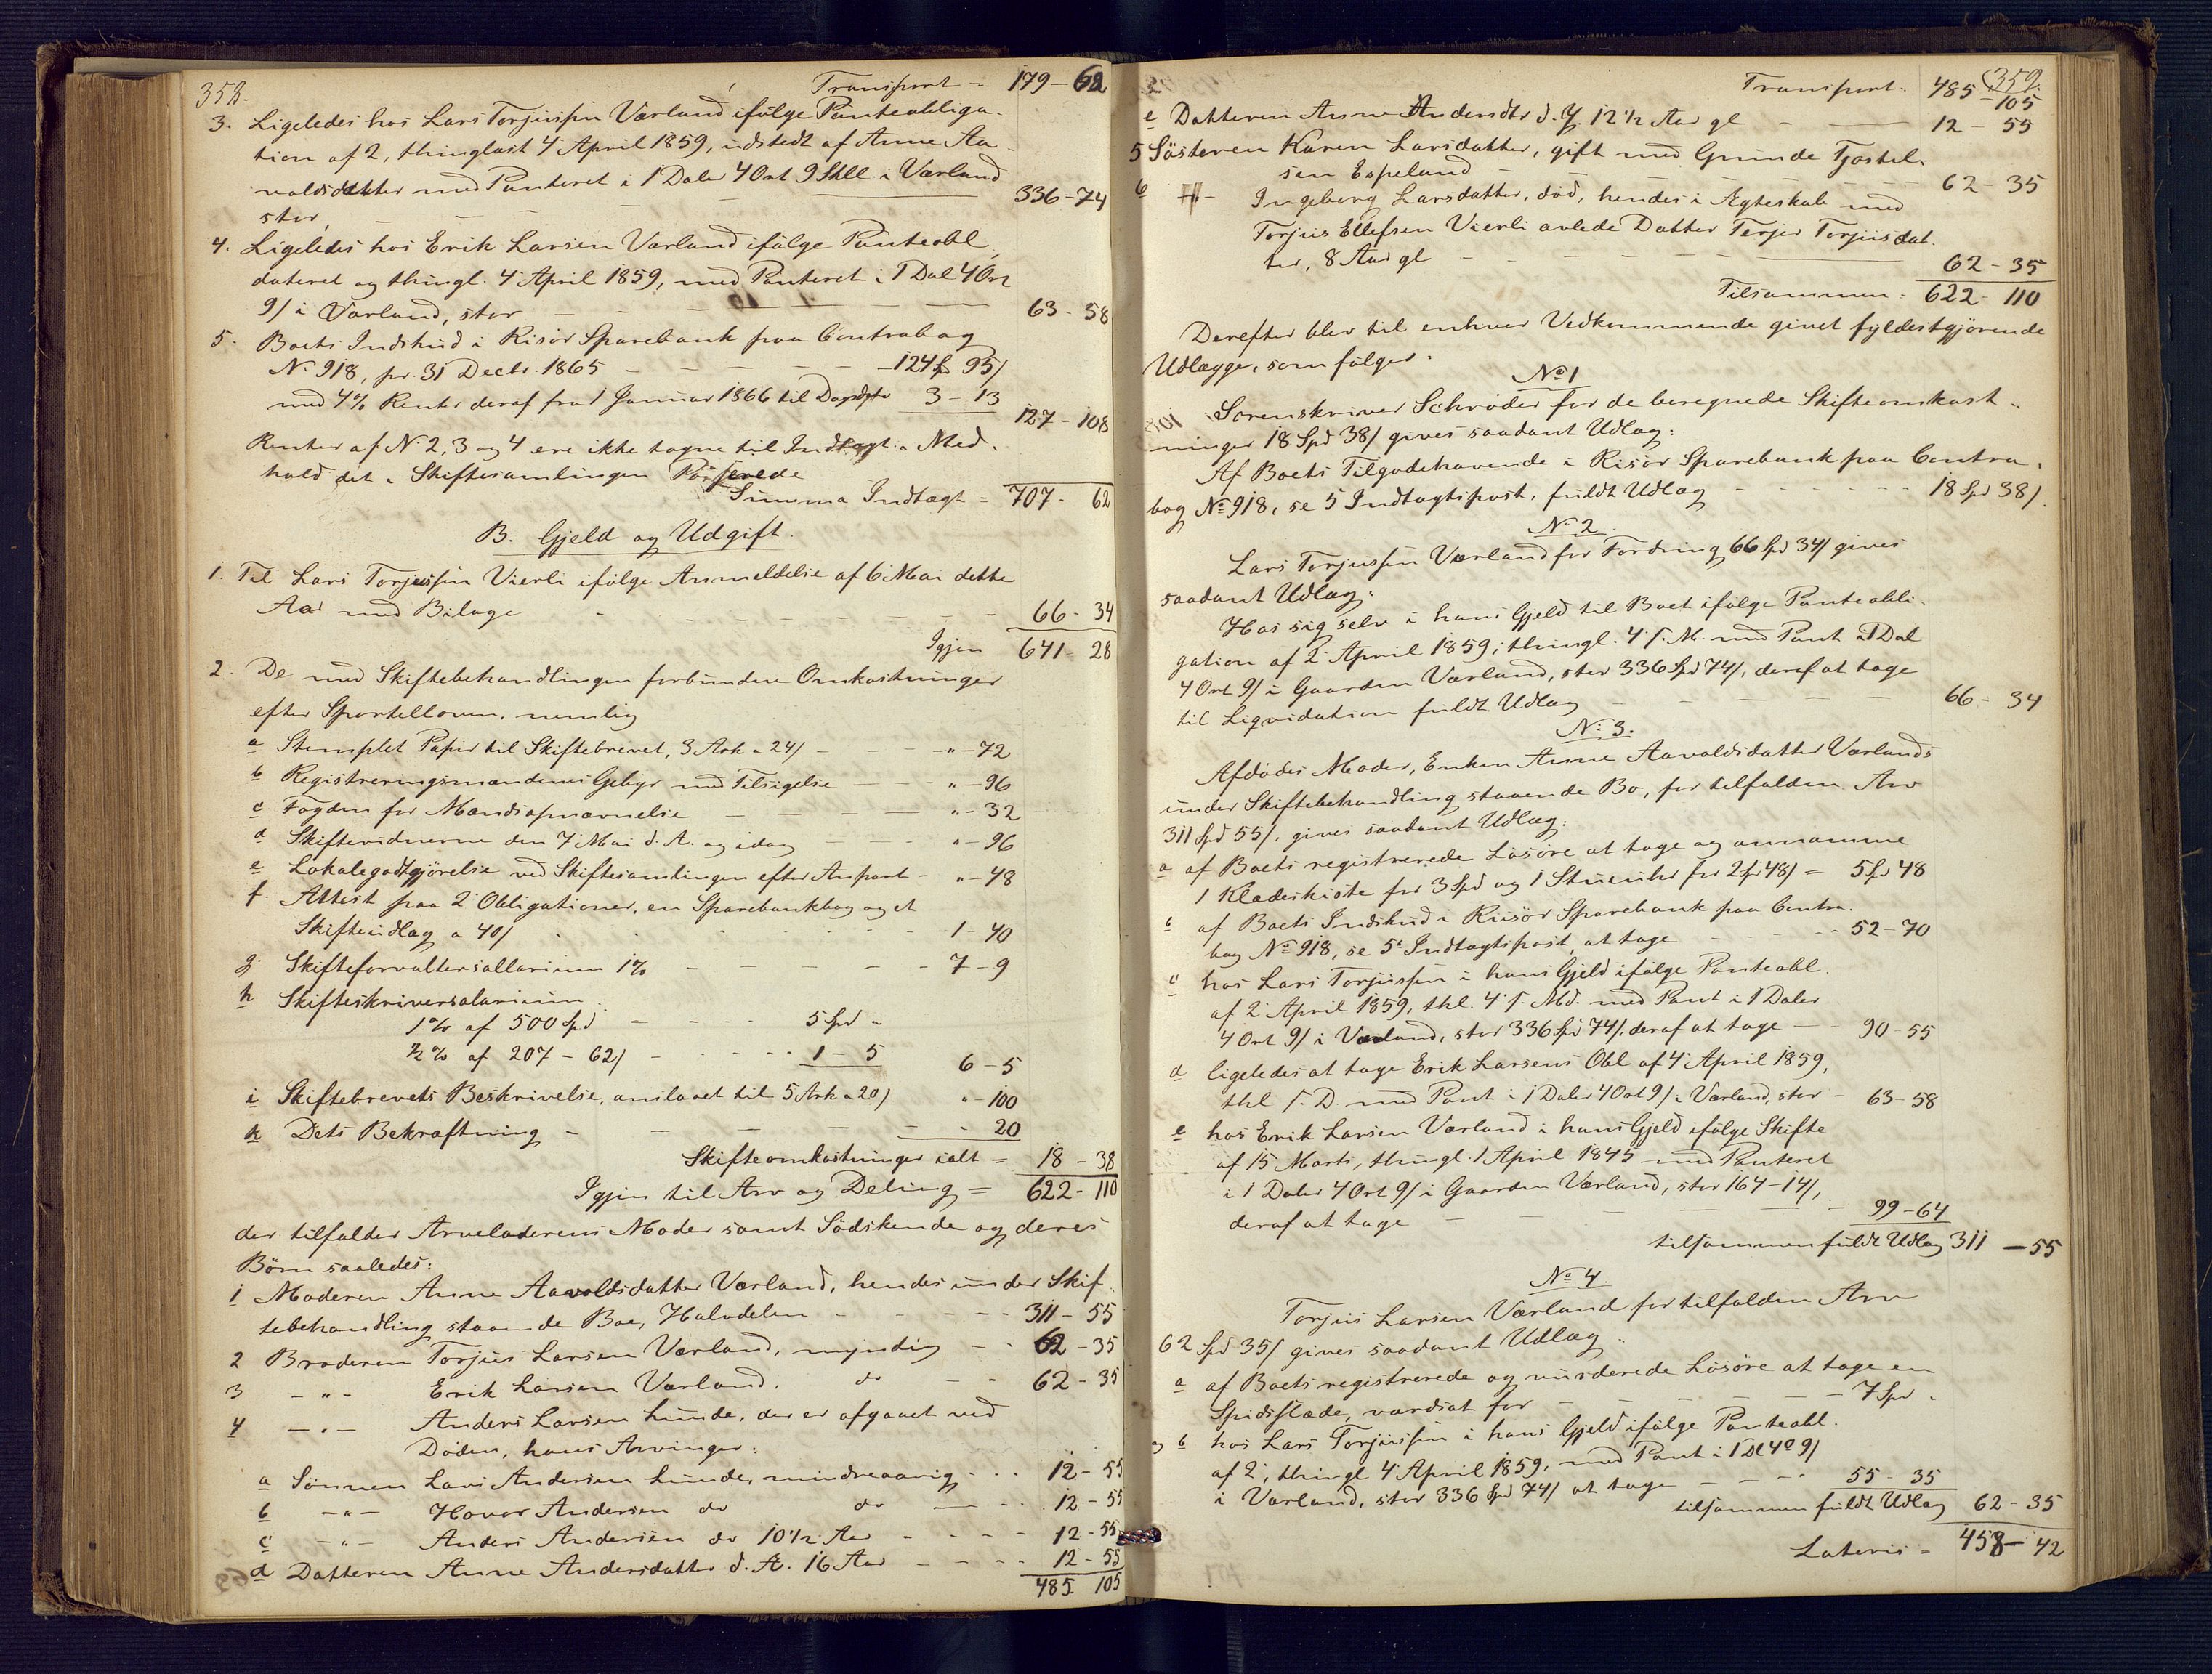 358.
Transport - 179 - 62
3. Ligeledes hos Lars Torjussen Værland ifölge Panteobliga-
tion af 2, thinglæst 4 April 1859, udstedt af Anne Aa-
valdsdatter med Panteret i 1 Daler 4 Ort 9 Skll i Værland
stor, - 336 - 74
4. Ligeledes hos Erik Larsen Værland ifölge Panteobl.
dateret og thingl. 4 April 1859, med Panteret i 1 Dal 4 Ort
9/ i Værland, stor - 63 - 58
5. Boets Indskud i Risör Sparebank paa Contrabog
No 918, pr. 31 Decbr. 1865 - 124 Spd 95/
med 4% Renter deraf fra 1 Januar 1866 til Dags Dato 3 - 13
127 - 108
Renter af No 2, 3 og 4 ere ikke tagne til Indtægt i Med-
hold det i Skiftesamlingen Passerede
Summa Indtægt = 707 - 62
B. Gjeld og Udgift.
1. Til Lars Torjussen Vierli ifölge Anmeldelse af 6 Mai dette
Aar med Bilage - 66 - 34
Igjen 641 - 28
2. De med Skiftebehandlingen forbundne Omkostninger
efter Sportelloven, nemlig
a Stemplet Papir til Skiftebrevet, 3 Ark a 24/ - " - 72
b Registreringsmændenes Gebyr med Tilsigelse - " - 96
c Fogden for Mændsopnævnelse - " - 32
d Skiftevidnerne den 7 Mai d. A. og idag - " - 96
e Lokalegodtgjörelse ved Skiftesamlingen efter Anpart - " - 48
f. Attest paa 2 Obligationer, en Sparebankbog og et
Skifteudlæg a 40/ - 1 - 40
g. Skifteforvaltersallarium 1% - 7 - 9
h Skifteskriversalarium
1% af 500 Spd - 5 Spd "
½% af 207 - 62/ - 1 - 5 6 - 5
i Skiftebrevets Beskrivelse, anslaaet til 5 Ark a 20/ " - 100
k Dets Bekræftning - " 20
Skifteomkostninger ialt = 18 - 38
Igjen til Arv og Deling = 622 - 110
der tilfalder Arveladerens Moder samt Södskende og deres
Börn saaledes:
1 Moderen Anne Aavoldsdatter Værland, hendes under Skif-
tebehandling staaende Boe, Halvdelen - 311 - 55
2 Broderen Torjus Larsen Værland, myndig - 62 - 35
3 - " - Erik Larsen Værland, do - 62 - 35
4 - " - Anders Larsen Lunde, der er afgaaet ved
Döden, hans Arvinger:
a Sönnen Lars Andersen Lunde, mindreaarig - 12 - 55
b - " - Hovor Andersen do do - 12 - 55
c - " - Anders Andersen do 10½ Aar - 12 - 55
d Datteren Anne Andersdatter d. Æ. 16 Aar - 12 - 55
485. 105
359.
Transport. 485 - 105
e Datteren Anne Andersdtr d. Y. 12½ Aar gl - 12 - 55
5 Sösteren Karen Larsdatter, gift med Gunde Tjostel-
sen Espeland - 62 - 35
6 - Ingeborg Larsdatter, död, hendes i Ægteskab med
Torjus Ellefsen Vierli avlede Datter Terjer Torjusdat-
ter, 8 Aar gl - 62 - 35
Tilsammen = 622 - 110
Derefter blev til enhver Vedkommende givet fyldestgjörende
Udlægge, som fölger:
No 1
Sorenskriver Schrøder for de beregnede Skifteomkost-
ninger 18 Spd 38/ gives saadant Udlæg:
Af Boets Tilgodehavende i Risör Sparebank paa Contra-
bog No 918, se 5 Indtægtspost, fuldt Udlæg - 18 Spd 38/.
No 2.
Lars Torjussen Værland for Fordring 66 Spd 34/ gives
saadant Udlæg:
Hos sig selv i hans Gjeld til Boet ifölge Panteobli-
gation af 2 April 1859, thingl. 4 s. M. med Pant i 1 Dal
4 Ort 9/ i Gaarden Værland, stor 336 Spd 74/, deraf at tage
til Liqvidation fuldt Udlæg - 66 - 34
No 3.
Afdödes Moder, Enken Anne Aavoldsdatter Værlands
under Skiftebehandling staaende Bo, for tilfalden Arv
311 Spd 55/, gives saadant Udlæg:
a af Boets registrerede Lösöre at tage og annamme
1 Klædeskiste for 3 Spd og 1 Stueuhr for 2 Spd 48/ = 5 Spd 48
b af Boets Indskud i Risör Sparebank paa Contra-
bog No 918, se 5te Indtægtspost, at tage - 52 - 70
c hos Lars Torjussen i hans Gjeld ifölge Panteobl.
af 2 April 1859, thl. 4 s. Md. med Pant i 1 Daler
4 Ort 9/ i Værland, stor 336 Spd 74/, deraf at tage - 90 - 55
d ligeledes at tage Erik Larsens Obl af 4 April 1859,
thl s. D. med Pant i 1 Daler 4 Ort 9/ i Værland, stor - 63 - 58
e hos Erik Larsen Værland i hans Gjeld ifölge Skifte
af 15 Marts, thingl. 1 April 1845 med Panteret
i 1 Daler 4 Ort 9/ i Gaarden Værland, stor 164 - 14/,
deraf at tage - 99 - 64
tilsammen fuldt Udlæg 311 - 55
No 4.
Torjus Larsen Værland for tilfalden Arv
62 Spd 35/ gives saadant Udlæg:
a af Boets registrerede og vurderede Lösöre at tage en
Spidsslæde, værdsat for - 7 Spd "
og b hos Lars Torjussen i hans Gjeld ifölge Panteobl.
af 2, thingl 4 April 1859, med Pant i 1 Dl 4 O 9/
i Værland, stor 336 Spd 74/ at tage - 55 - 35
tilsammen fuldt Udlæg 62 - 35
Lateris = 458 - 42